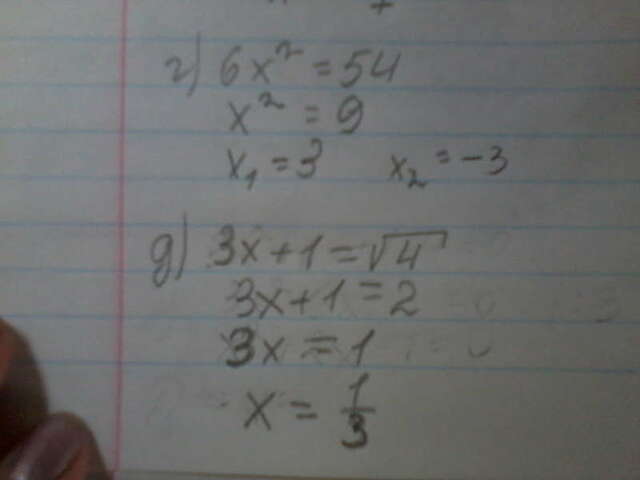 г) 6x² = 54
x² = 9
x₁ = 3 x₂ = -3
д) 3x + 1 = √4
3x + 1 = 2
3x = 1
x = 1/3